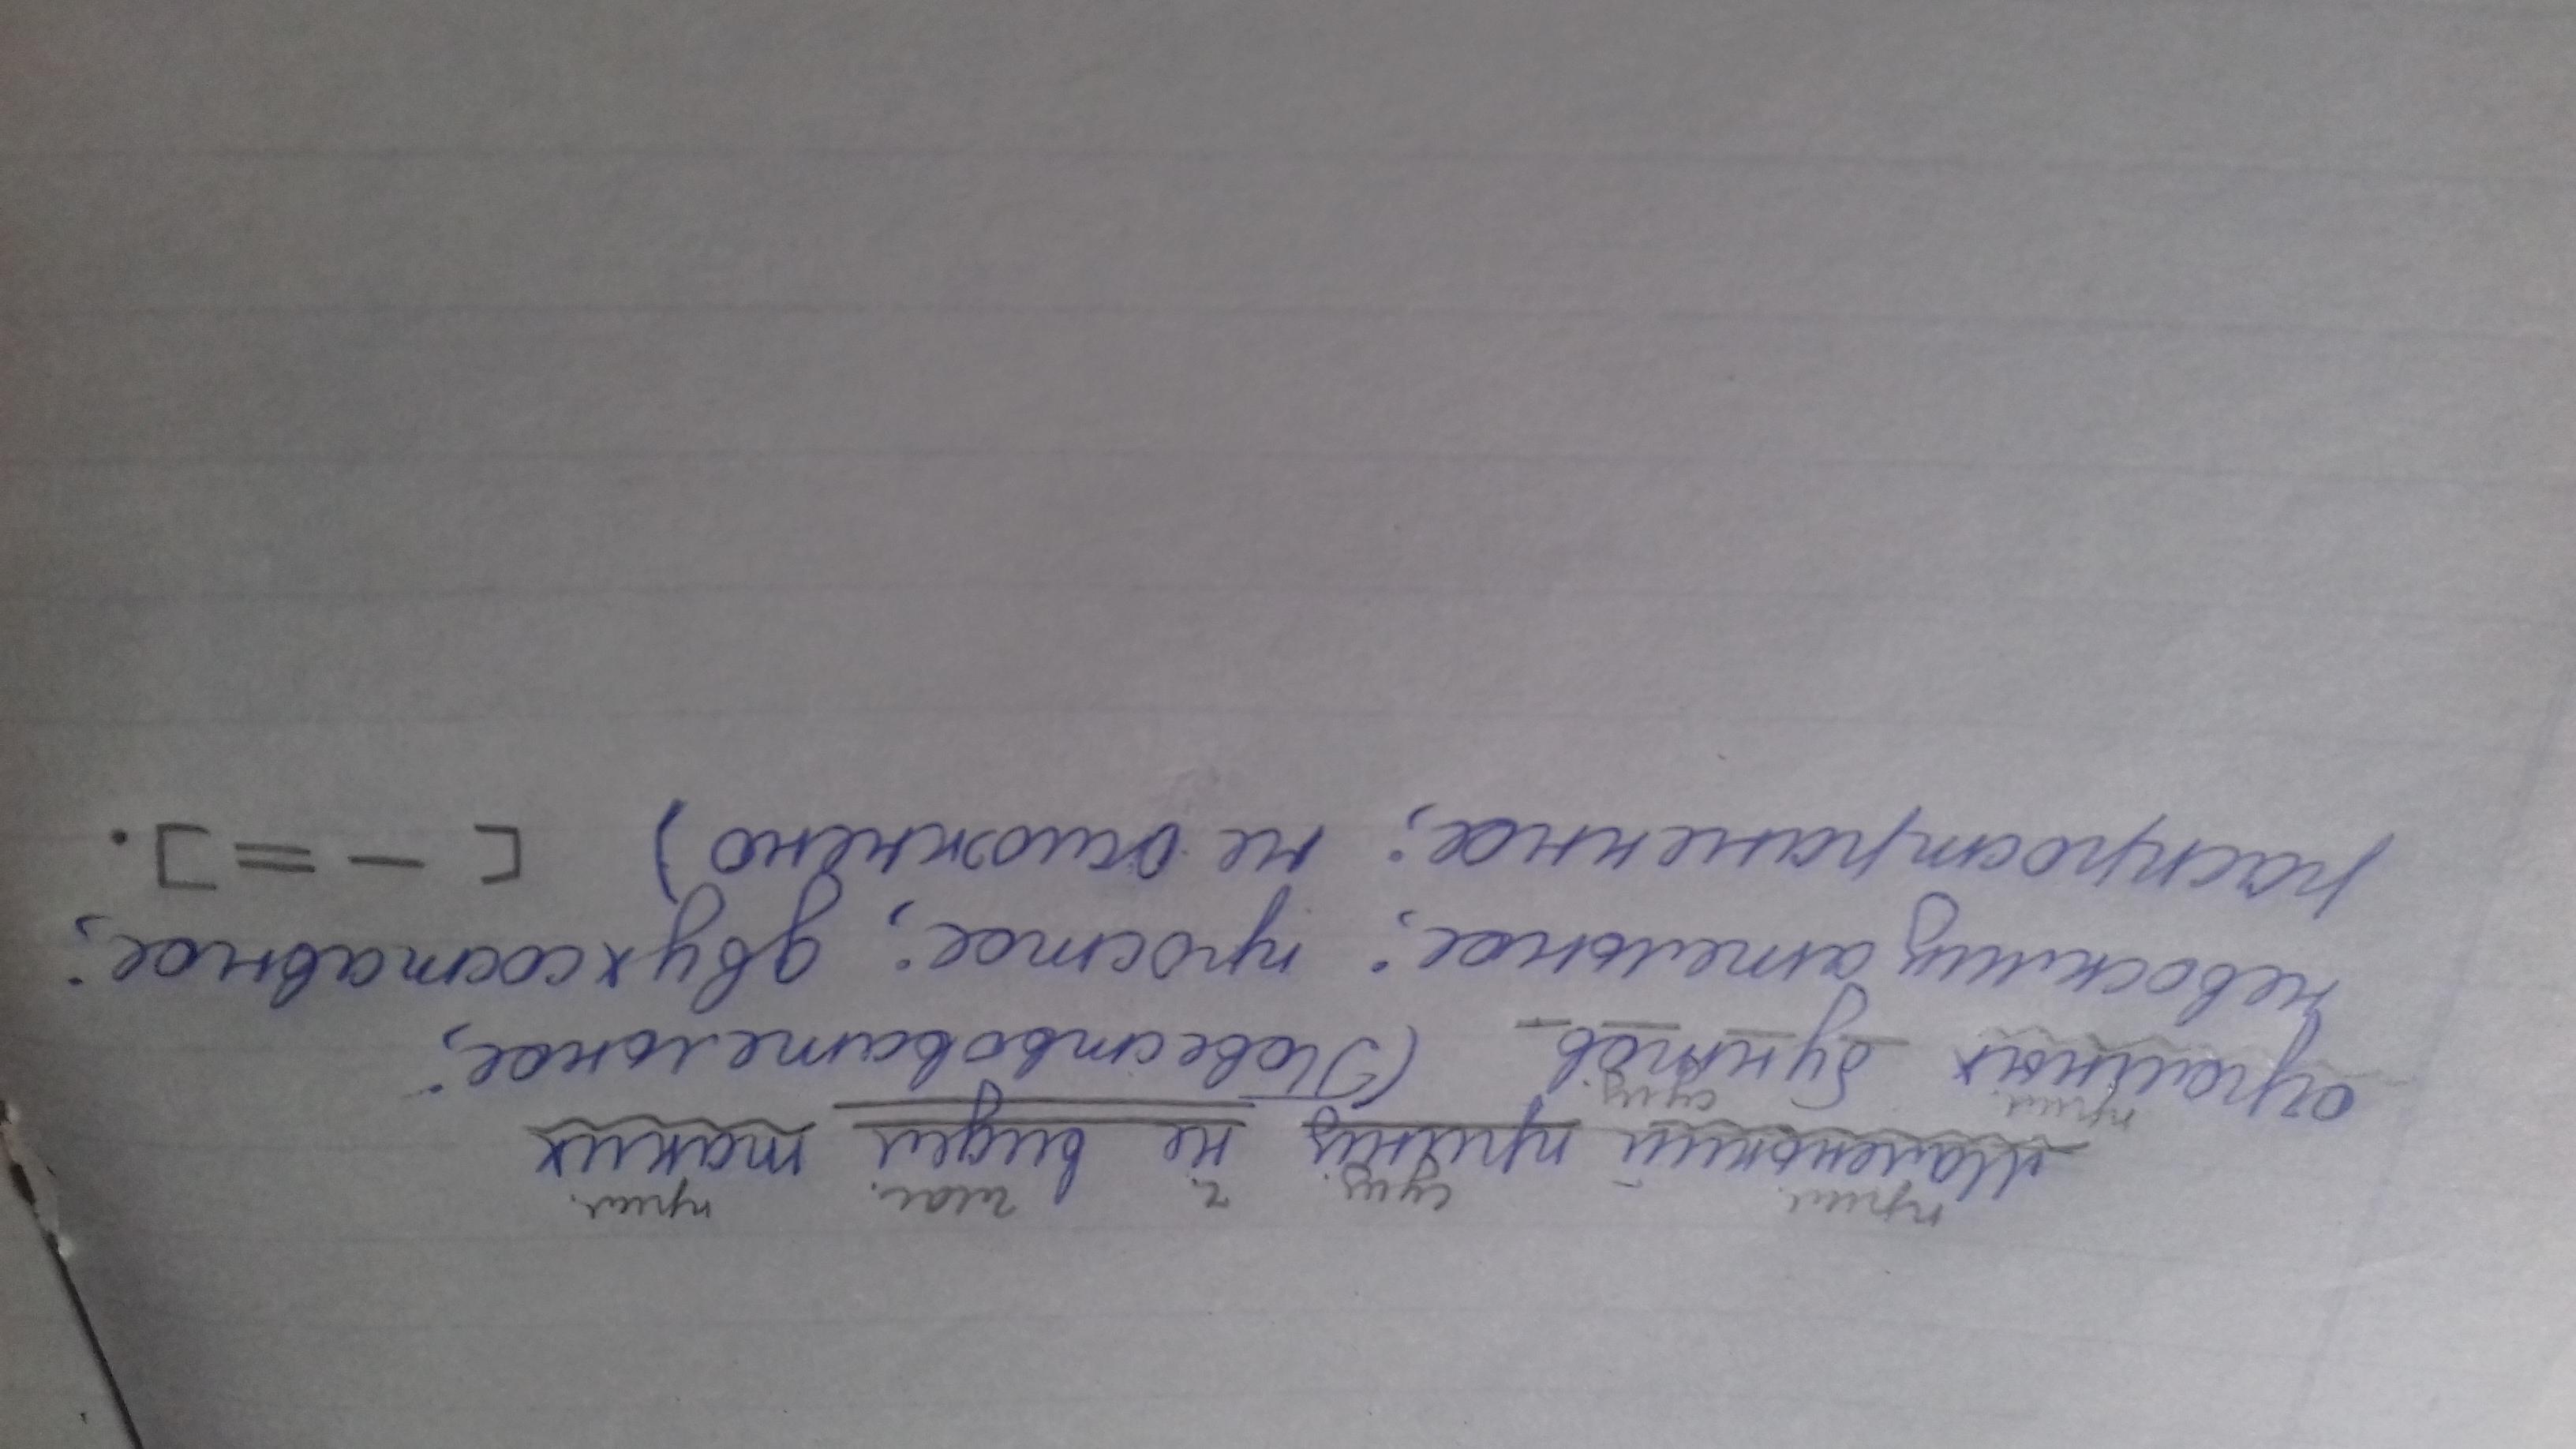 прил. сущ. ч. глаг. прил.
Маленький принц не видел таких
прил. сущ.
огромных бунтов (Повествовательное;
невосклицательное; простое; двухсоставное;
распространенное; не осложнено) [ — = ].